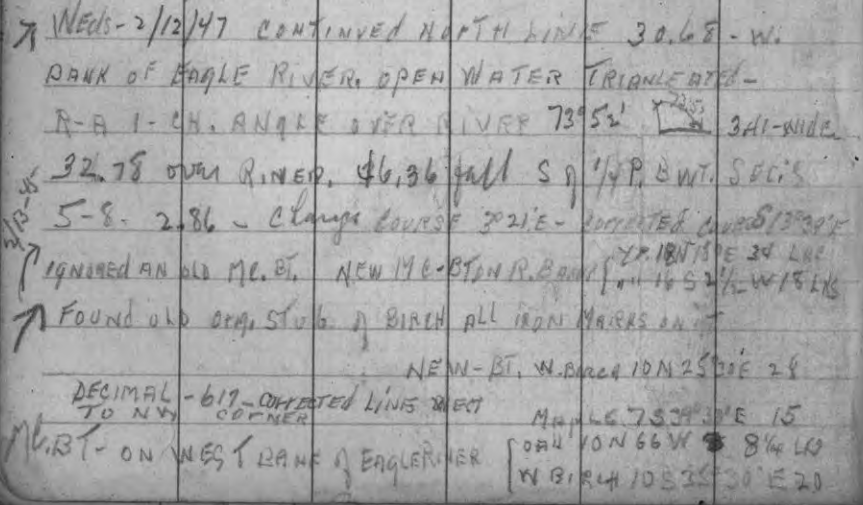 WEDS - 2/12/47 CONTINUED NORTH LINE 30.68 - W.
BANK OF EAGLE RIVER. OPEN WATER TRIANGLEATED -
R-A 1-CH. ANGLE OVER RIVER 73°52' 3.41-WIDE
32.78 over RIVER. 6.36 fall S of 1/4 P. BWT. SEC'S
5-8- 2.86 - Change COURSE 3°21'E - CORRECTED COURSE
2/13-
IGNORED AN OLD MC. BT. NEW MC-BT ON R. BANK
FOUND OLD ORIG. STUB of BIRCH ALL IRON MARKS ON IT
NEW - BT. W. BIRCH 10 N 25 E 28
DECIMAL - 617 - CORRECTED LINE WEST
TO NW CORNER
MAPLE 7 S 39°30'E 15
MC. BT - ON WEST BANK of EAGLE RIVER OAK 10 N 66 W 8 1/4 LKS
W BIRCH 10 S 35°30'E 20